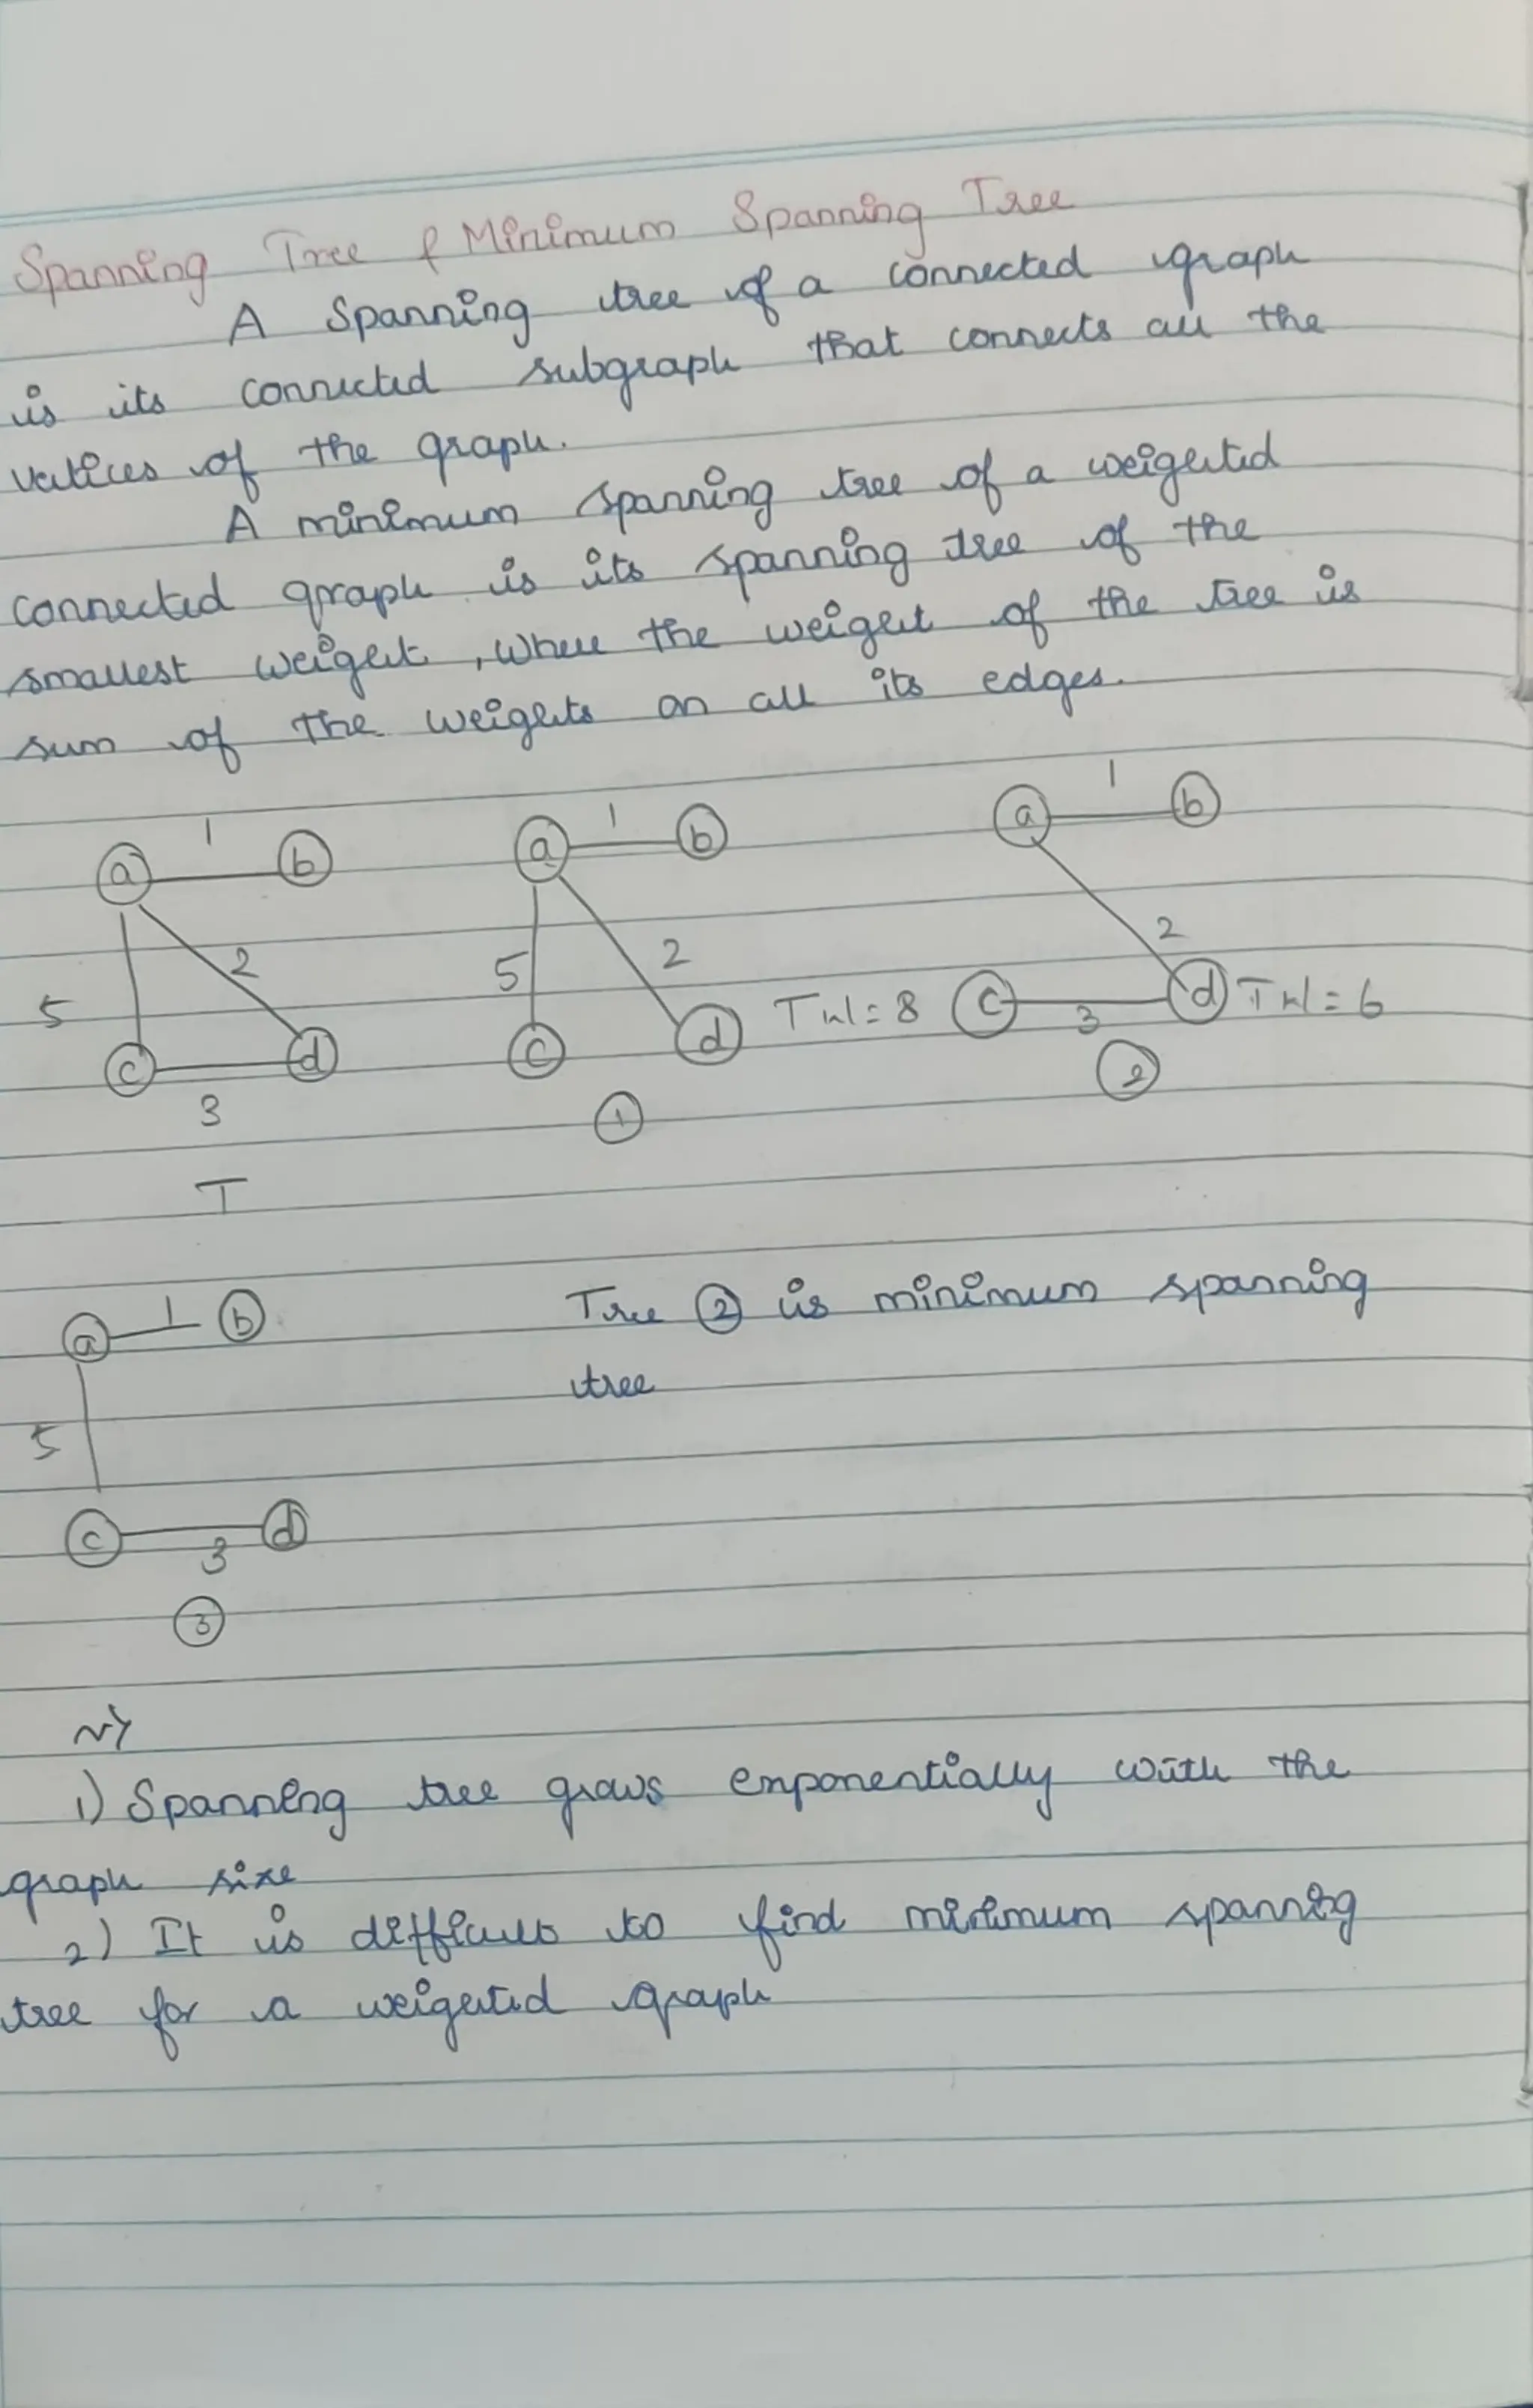 Spanning Tree & Minimum Spanning Tree
A Spanning tree of a connected graph
is its connected subgraph that connects all the
vertices of the graph.
A minimum spanning tree of a weighted
connected graph is its spanning tree of the
smallest weight, where the weight of the tree is
sum of the weights on all its edges.
a 1 b
5 2
c d
3
T
a 1 b
5 2
c d Tw = 8
1
a 1 b
2
c 3 d Tw = 6
2
a 1 b
5
c 3 d
3
Tree 2 is minimum spanning
tree
1) Spanning tree grows exponentially with the
graph size
2) It is difficult to find minimum spanning
tree for a weighted graph